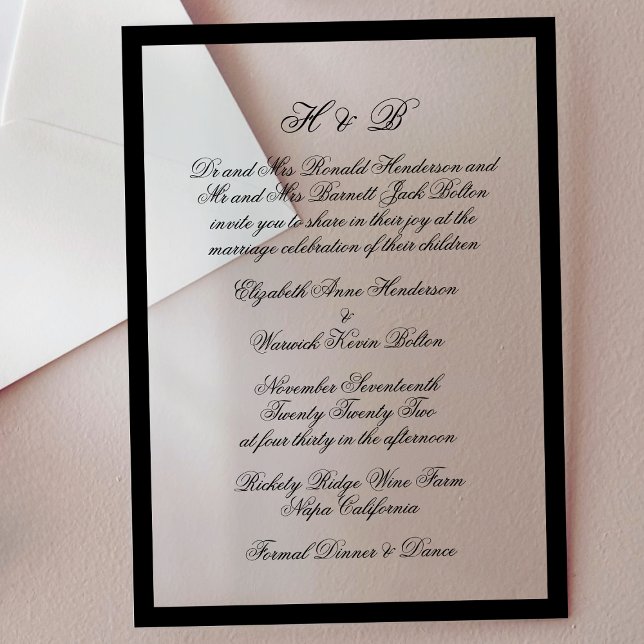 H & B
Dr and Mrs Ronald Henderson and
Mr and Mrs Barnett Jack Bolton
invite you to share in their joy at the
marriage celebration of their children
Elizabeth Anne Henderson
&
Warwick Kevin Bolton
November Seventeenth
Twenty Twenty Two
at four thirty in the afternoon
Rickety Ridge Wine Farm
Napa California
Formal Dinner & Dance